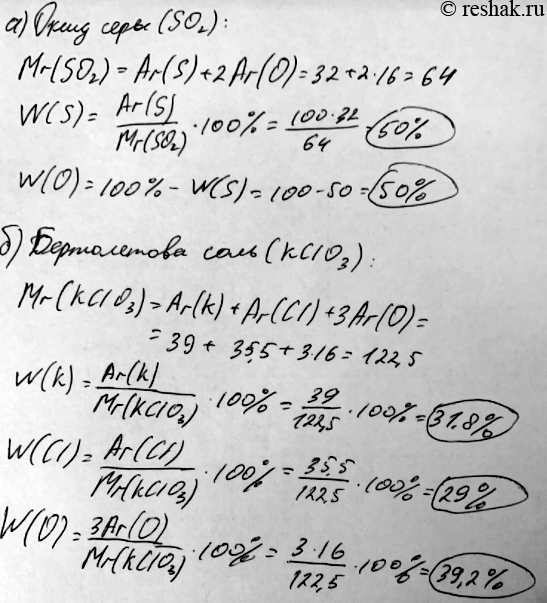 © reshak.ru
а) Оксид серы (SO₂):
Mr(SO₂) = Ar(S) + 2Ar(O) = 32 + 2·16 = 64
W(S) = Ar(S)/Mr(SO₂) · 100% = 100·32/64 = 50%
W(O) = 100% - W(S) = 100 - 50 = 50%
б) Бертолетова соль (KClO₃):
Mr(KClO₃) = Ar(K) + Ar(Cl) + 3Ar(O) =
= 39 + 35,5 + 3·16 = 122,5
W(K) = Ar(K)/Mr(KClO₃) · 100% = 39/122,5 · 100% = 31.8%
W(Cl) = Ar(Cl)/Mr(KClO₃) · 100% = 35.5/122,5 · 100% = 29%
W(O) = 3Ar(O)/Mr(KClO₃) · 100% = 3·16/122,5 · 100% = 39,2%